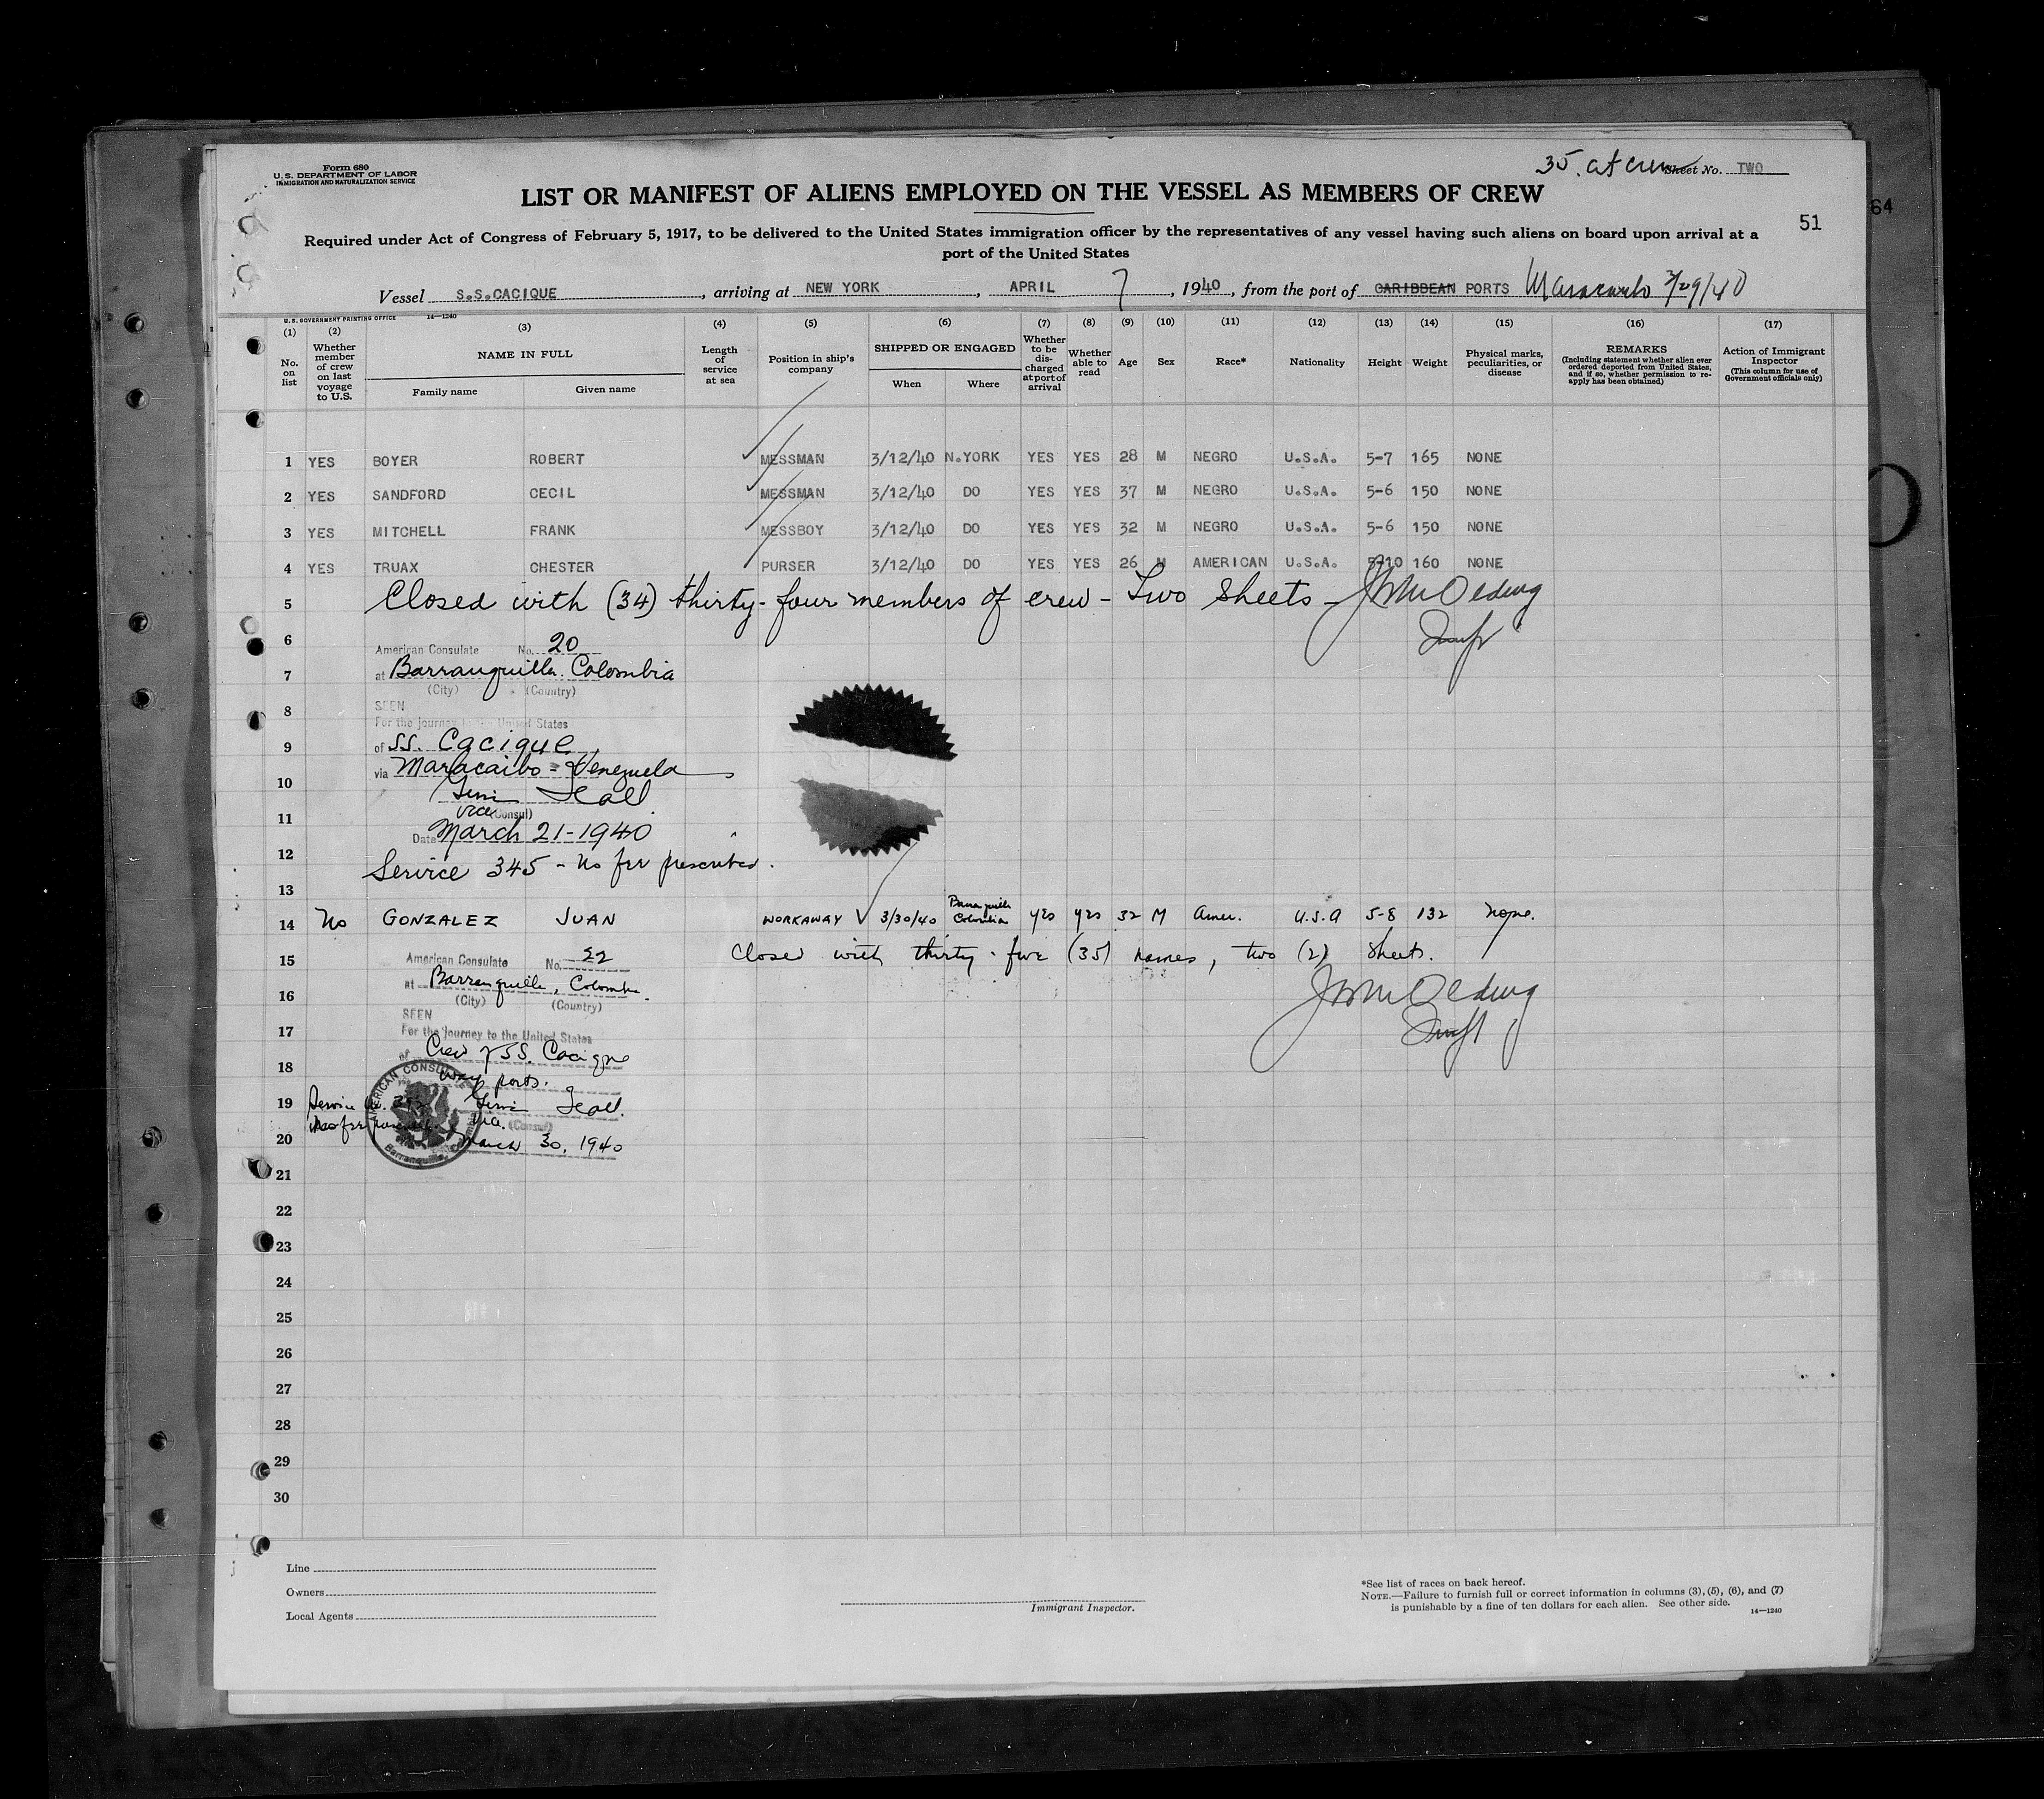 Form 680
U. S. DEPARTMENT OF LABOR
IMMIGRATION AND NATURALIZATION SERVICE
35. at crew
Sheet No. TWO
LIST OR MANIFEST OF ALIENS EMPLOYED ON THE VESSEL AS MEMBERS OF CREW
64
51
Required under Act of Congress of February 5, 1917, to be delivered to the United States immigration officer by the representatives of any vessel having such aliens on board upon arrival at a
port of the United States
Vessel S.S.CACIQUE, arriving at NEW YORK, APRIL 7, 1940, from the port of CARIBBEAN PORTS Maracaibo 3/29/40
U. S. GOVERNMENT PRINTING OFFICE 14—1240
(1) (2) (3) (4) (5) (6) (7) (8) (9) (10) (11) (12) (13) (14) (15) (16) (17)
No. on list
Whether member of crew on last voyage to U.S.
NAME IN FULL
Family name Given name
Length of service at sea
Position in ship's company
SHIPPED OR ENGAGED
When Where
Whether to be discharged at port of arrival
Whether able to read
Age
Sex
Race*
Nationality
Height
Weight
Physical marks, peculiarities, or disease
REMARKS
(Including statement whether alien ever ordered deported from United States, and if so, whether permission to reapply has been obtained)
Action of Immigrant Inspector
(This column for use of Government officials only)
1 YES BOYER ROBERT MESSMAN 3/12/40 N.YORK YES YES 28 M NEGRO U.S.A. 5-7 165 NONE
2 YES SANDFORD CECIL MESSMAN 3/12/40 DO YES YES 37 M NEGRO U.S.A. 5-6 150 NONE
3 YES MITCHELL FRANK MESSBOY 3/12/40 DO YES YES 32 M NEGRO U.S.A. 5-6 150 NONE
4 YES TRUAX CHESTER PURSER 3/12/40 DO YES YES 26 M AMERICAN U.S.A. 5-10 160 NONE
5 Closed with (34) thirty-four members of crew - Two Sheets -
6 American Consulate No. 20
7 at Barranquilla, Colombia
(City) (Country)
8 SEEN
For the journey to the United States
9 of SS. Cacique
via Maracaibo - Venezuela
10
11 Vice Consul)
Date March 21-1940
12
Service 345 - No fee prescribed.
13
14 No GONZALEZ JUAN WORKAWAY 3/30/40 Barranquilla Colombia yes yes 32 M Amer. U.S.A 5-8 132 none.
15 Closed with thirty-five (35) names, two (2) sheets.
American Consulate No. 22
16 at Barranquilla, Colombia.
(City) (Country)
SEEN
17 For the Journey to the United States
of Crew of SS. Cacique
18 way ports.
AMERICAN CONSULATE
Barranquilla,
19 Service
Vice (Consul)
20 March 30, 1940
21
22
23
24
25
26
27
28
29
30
Line
Owners
Local Agents
Immigrant Inspector.
*See list of races on back hereof.
NOTE.—Failure to furnish full or correct information in columns (3), (5), (6), and (7)
is punishable by a fine of ten dollars for each alien. See other side.
14—1240